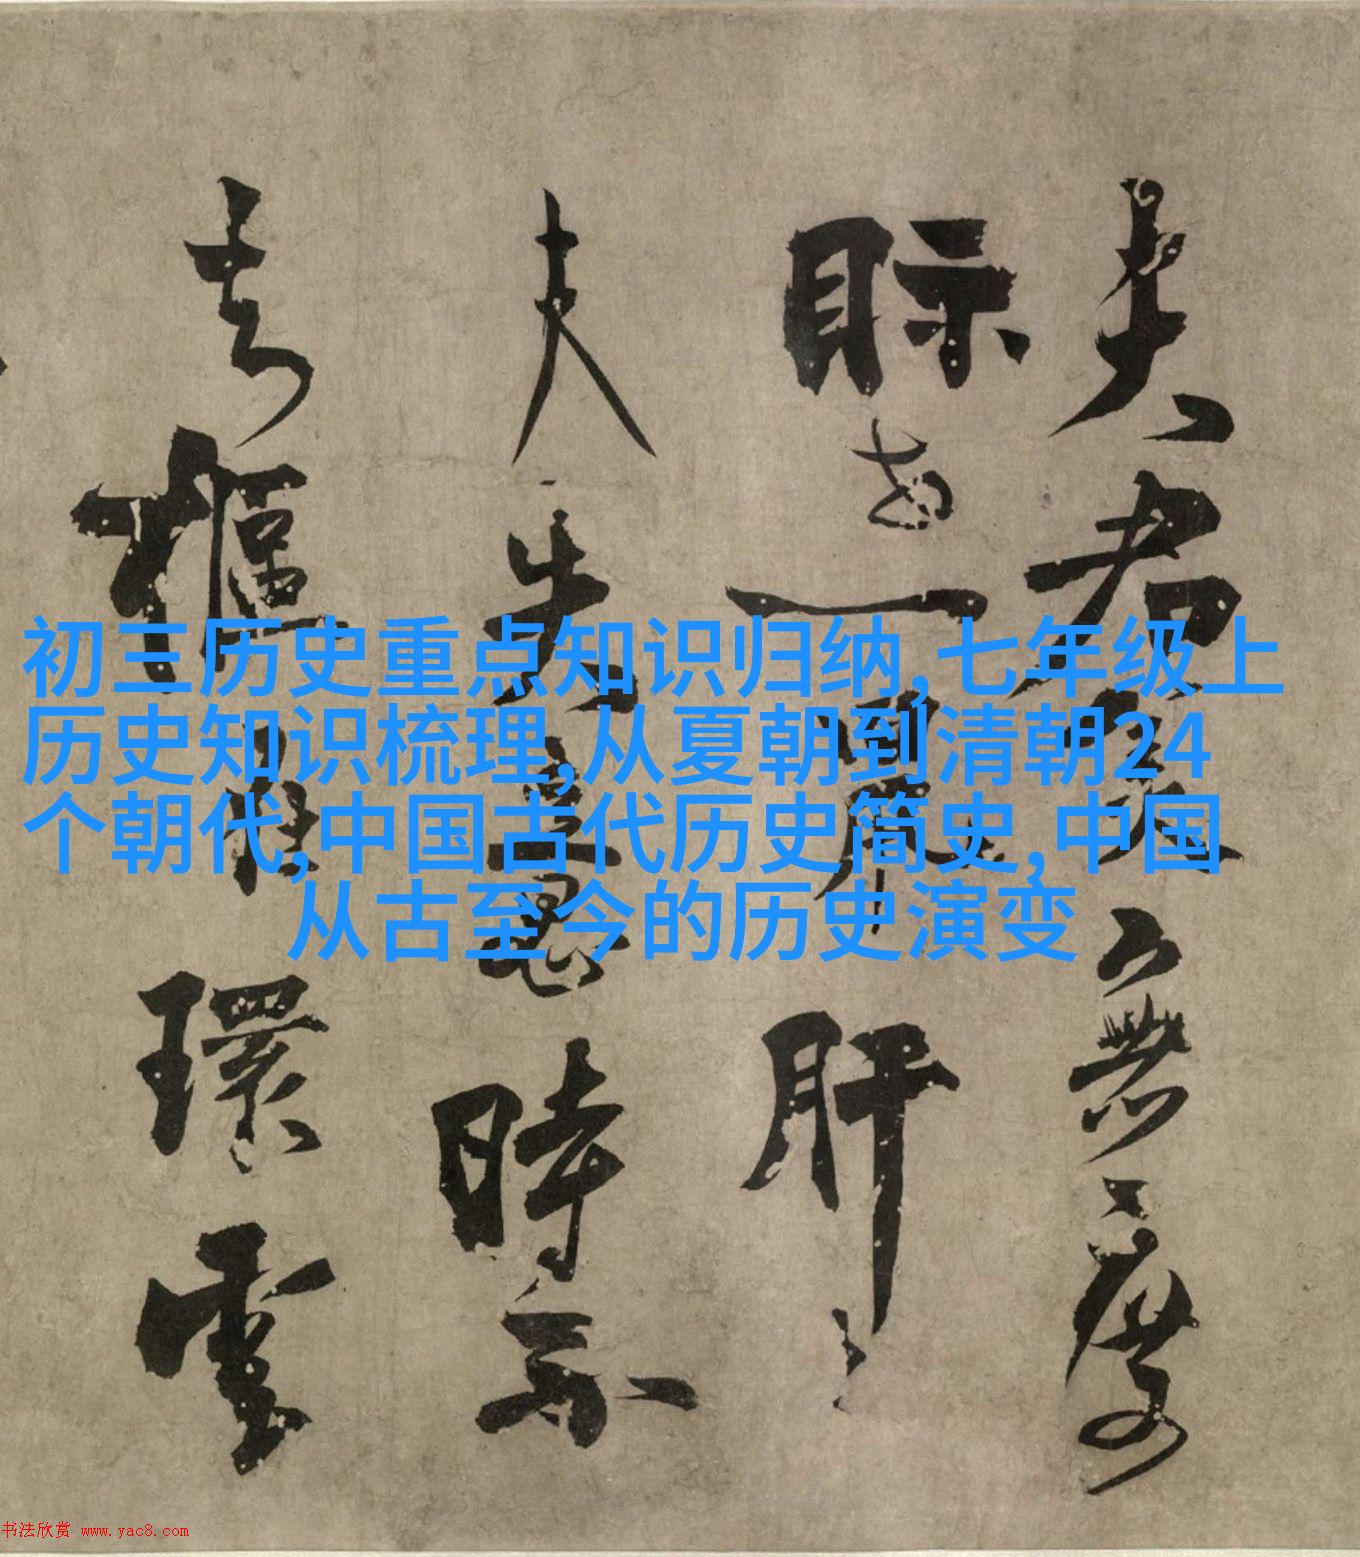 初三历史重点知识归纳,七年级上
历史知识梳理,从夏朝到清朝24
个朝代,中国古代历史简史,中国
从古至今的历史演变
君無度
眎一肝
夫失意時
樞環
书法欣赏 www.yac8.com